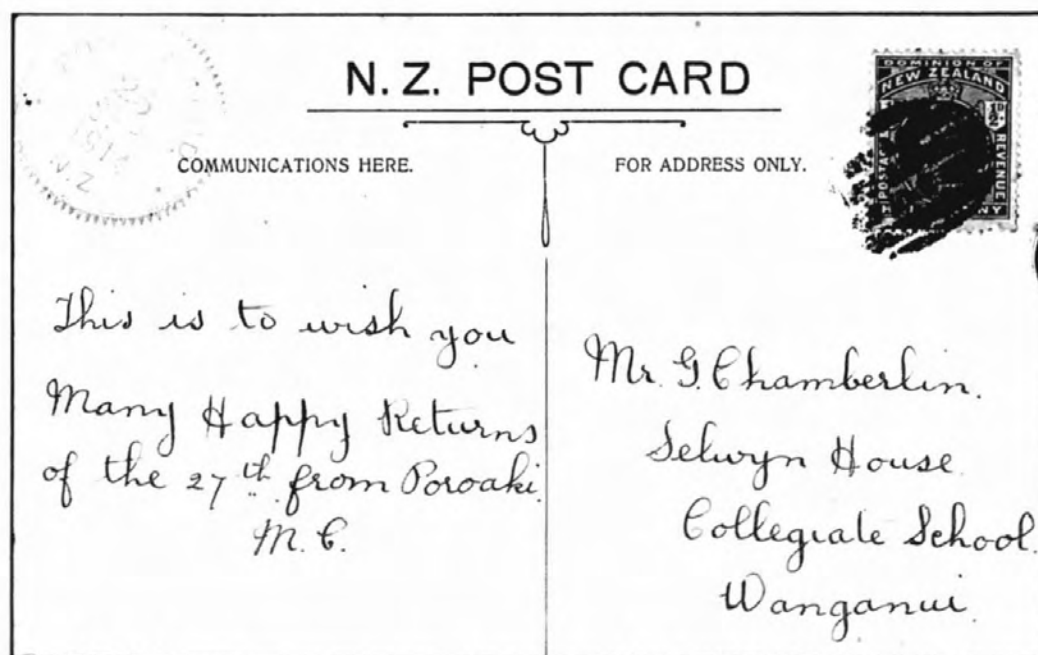 N. Z. POST CARD
COMMUNICATIONS HERE.
FOR ADDRESS ONLY.
DOMINION OF
NEW ZEALAND
½D.
POSTAL
REVENUE
N.Z.
This is to wish you
Many Happy Returns
of the 27th from Poroaki.
M. C.
Mr. G. Chamberlin.
Selwyn House
Collegiate School.
Wanganui